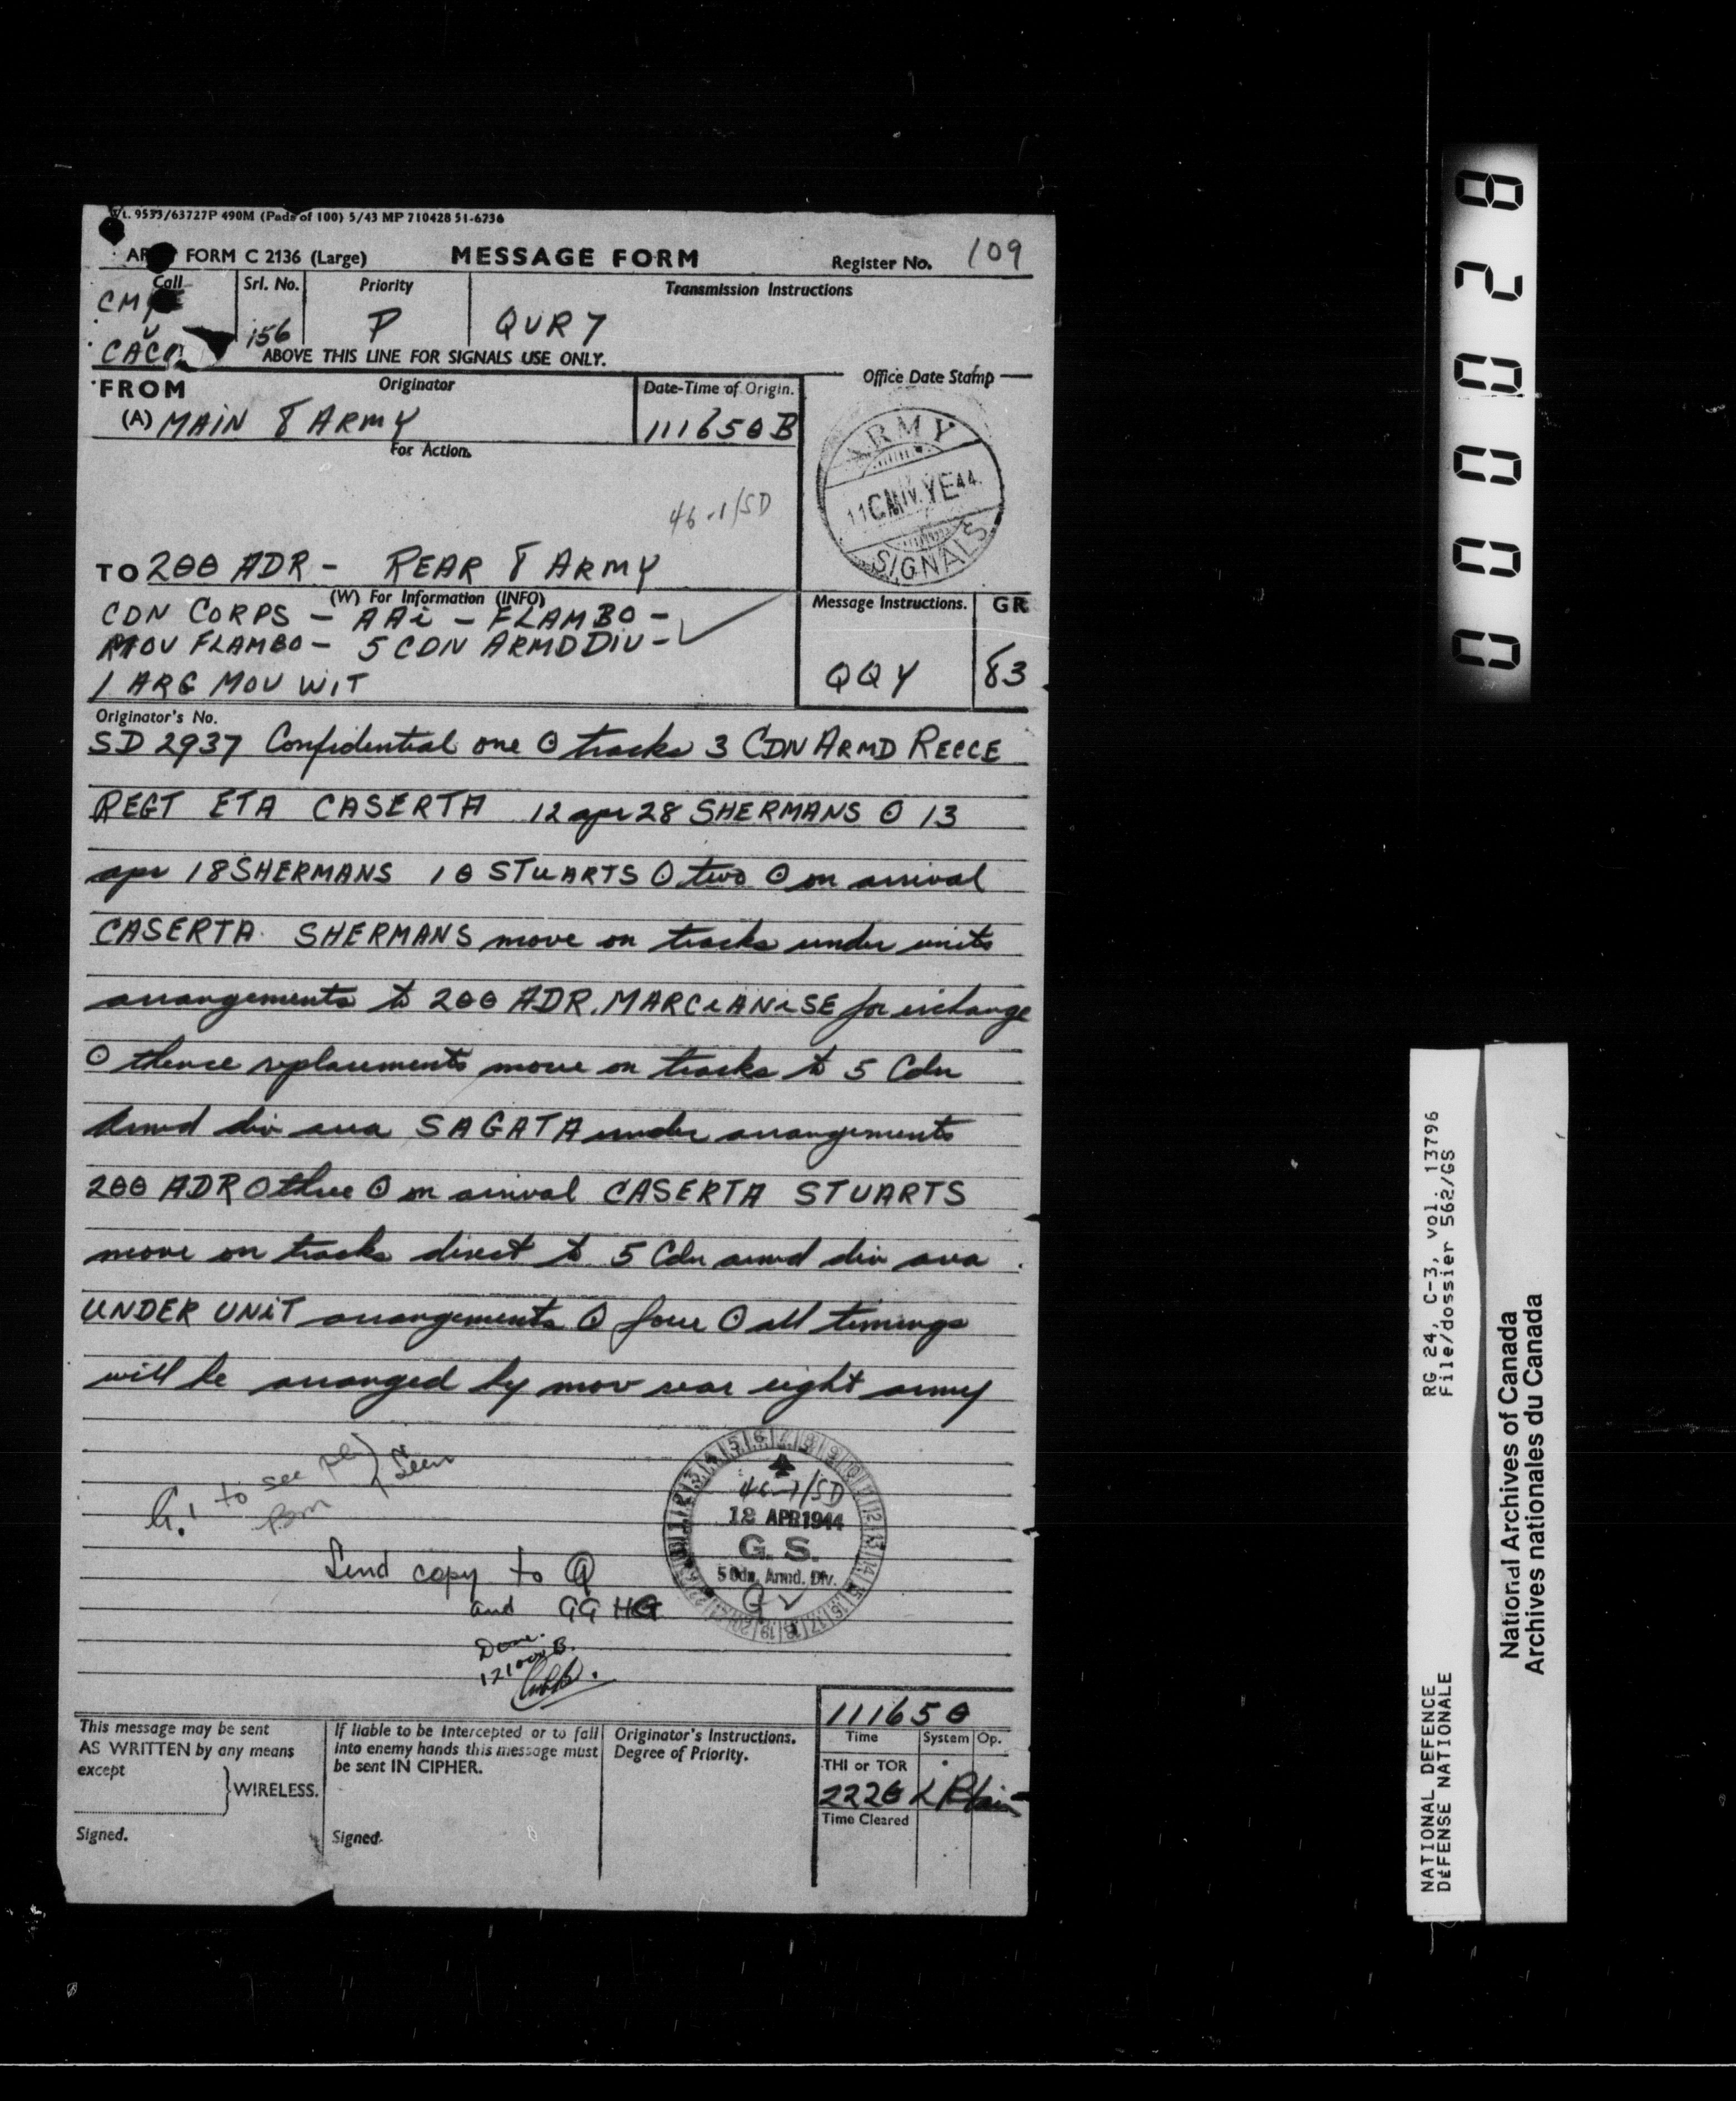 Wt. 9533/63727P 490M (Pads of 100) 5/43 MP 710428 51-6736
FORM C 2136 (Large) MESSAGE FORM Register No. 109
Call Srl. No. Priority Transmission Instructions
156 P QUR7
ABOVE THIS LINE FOR SIGNALS USE ONLY.
FROM Originator Date-Time of Origin. Office Date Stamp
(A) MAIN 8 ARMY 111650B
For Action
ARMY
SIGNALS
46-1/SD
TO 200 ADR - REAR 8 ARMY
(W) For Information (INFO) Message Instructions. GR
CDN CORPS - AAi - FLAMBO -
MOV FLAMBO - 5 CDN ARMD DIV -
1 ARG MOV WIT QQY 83
Originator's No.
SD 2937 Confidential one ⊙ tracks 3 CDN ARMD RECCE
REGT ETA CASERTA 12 apr 28 SHERMANS ⊙ 13
apr 18 SHERMANS 10 STUARTS ⊙ two ⊙ on arrival
CASERTA SHERMANS move on tracks under units
arrangements to 200 ADR MARCiANiSE for exchange
⊙ thence replacements move on tracks to 5 Cdn
Armd div area SAGATA under arrangements
200 ADR ⊙ three ⊙ on arrival CASERTA STUARTS
move on tracks direct to 5 Cdn armd div area
UNDER UNiT arrangements ⊙ four ⊙ all timings
will be arranged by mov rear eight army
to see
Seen
46-1/SD
12 APR 1944
G. S.
5 Cdn. Armd. Div.
Send copy to Q
and GGHG
Done.
111650
This message may be sent
AS WRITTEN by any means
except
WIRELESS.
Signed.
If liable to be intercepted or to fall
into enemy hands this message must
be sent IN CIPHER.
Signed
Originator's Instructions.
Degree of Priority.
Time System Op.
THI or TOR
2220
Time Cleared
00028
RG 24, C-3, vol. 13796
File/dossier 562/GS
NATIONAL DEFENCE
DÉFENSE NATIONALE
National Archives of Canada
Archives nationales du Canada